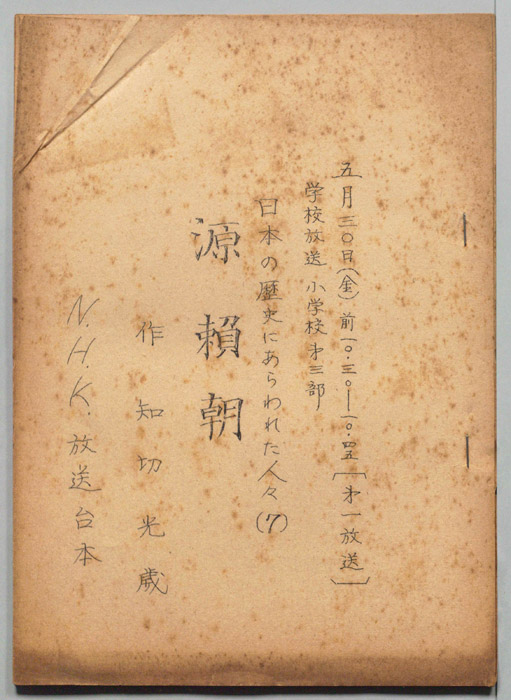 五月三〇日(金)前一〇・三〇―一〇・四五[第一放送]
学校放送 小学校第三部
日本の歴史にあらわれた人々(7)
源賴朝
作 知切光歳
N.H.K.放送台本